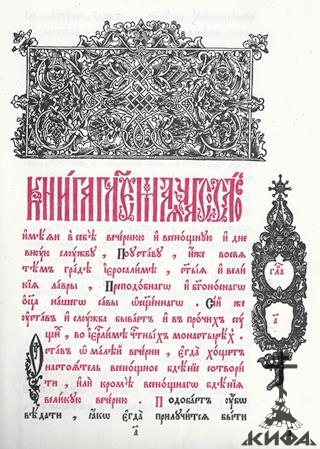 КНИ́ГА ГЛЕ́МАѦ ОУСТА́ВЪ
и҆мѣ́ѧй в̾ себѣ̀ вече́рнюю и҆ всено́щную и҆ дне
вну́ю слꙋ́жбꙋ, По ᲂу҆ста́вꙋ, и҆́же во свѧ
тѣ́мъ гра́дѣ і҆ерⷭ҇али́мѣ, ст҃ы́ѧ и҆ вели́
кіѧ ла́вры, Преподо́бнагѡ и҆ бг҃оно́снагѡ
ѻ҆ц҃а̀ на́шегѡ са́вы ѡ҆сщ҃е́ннагѡ. Се́й же
ᲂу҆ста́въ и҆ слꙋ́жба быва́етъ и҆ в̾ про́чихъ сꙋ́
щїй, во і҆ерⷭ҇ли́мѣ чⷭ҇тны́хъ монастырѣ́хъ.
Оу҆ста́въ ѡ҆ ма́лѣй вече́рни, є҆гда̀ хо́щетъ
настоѧ́тель всено́щное бдѣ́нїе сотвори́
ти, и҆лѝ кромѣ̀ всено́щнагѡ бдѣ́нїѧ
вели́кꙋю вече́рню. Подоба́етъ ᲂу҆́бѡ
вѣ́дати, ꙗ҆́кѡ є҆гда̀ прилꙋчи́тсѧ бы́ти
гла
а҃
а҃
КИФА